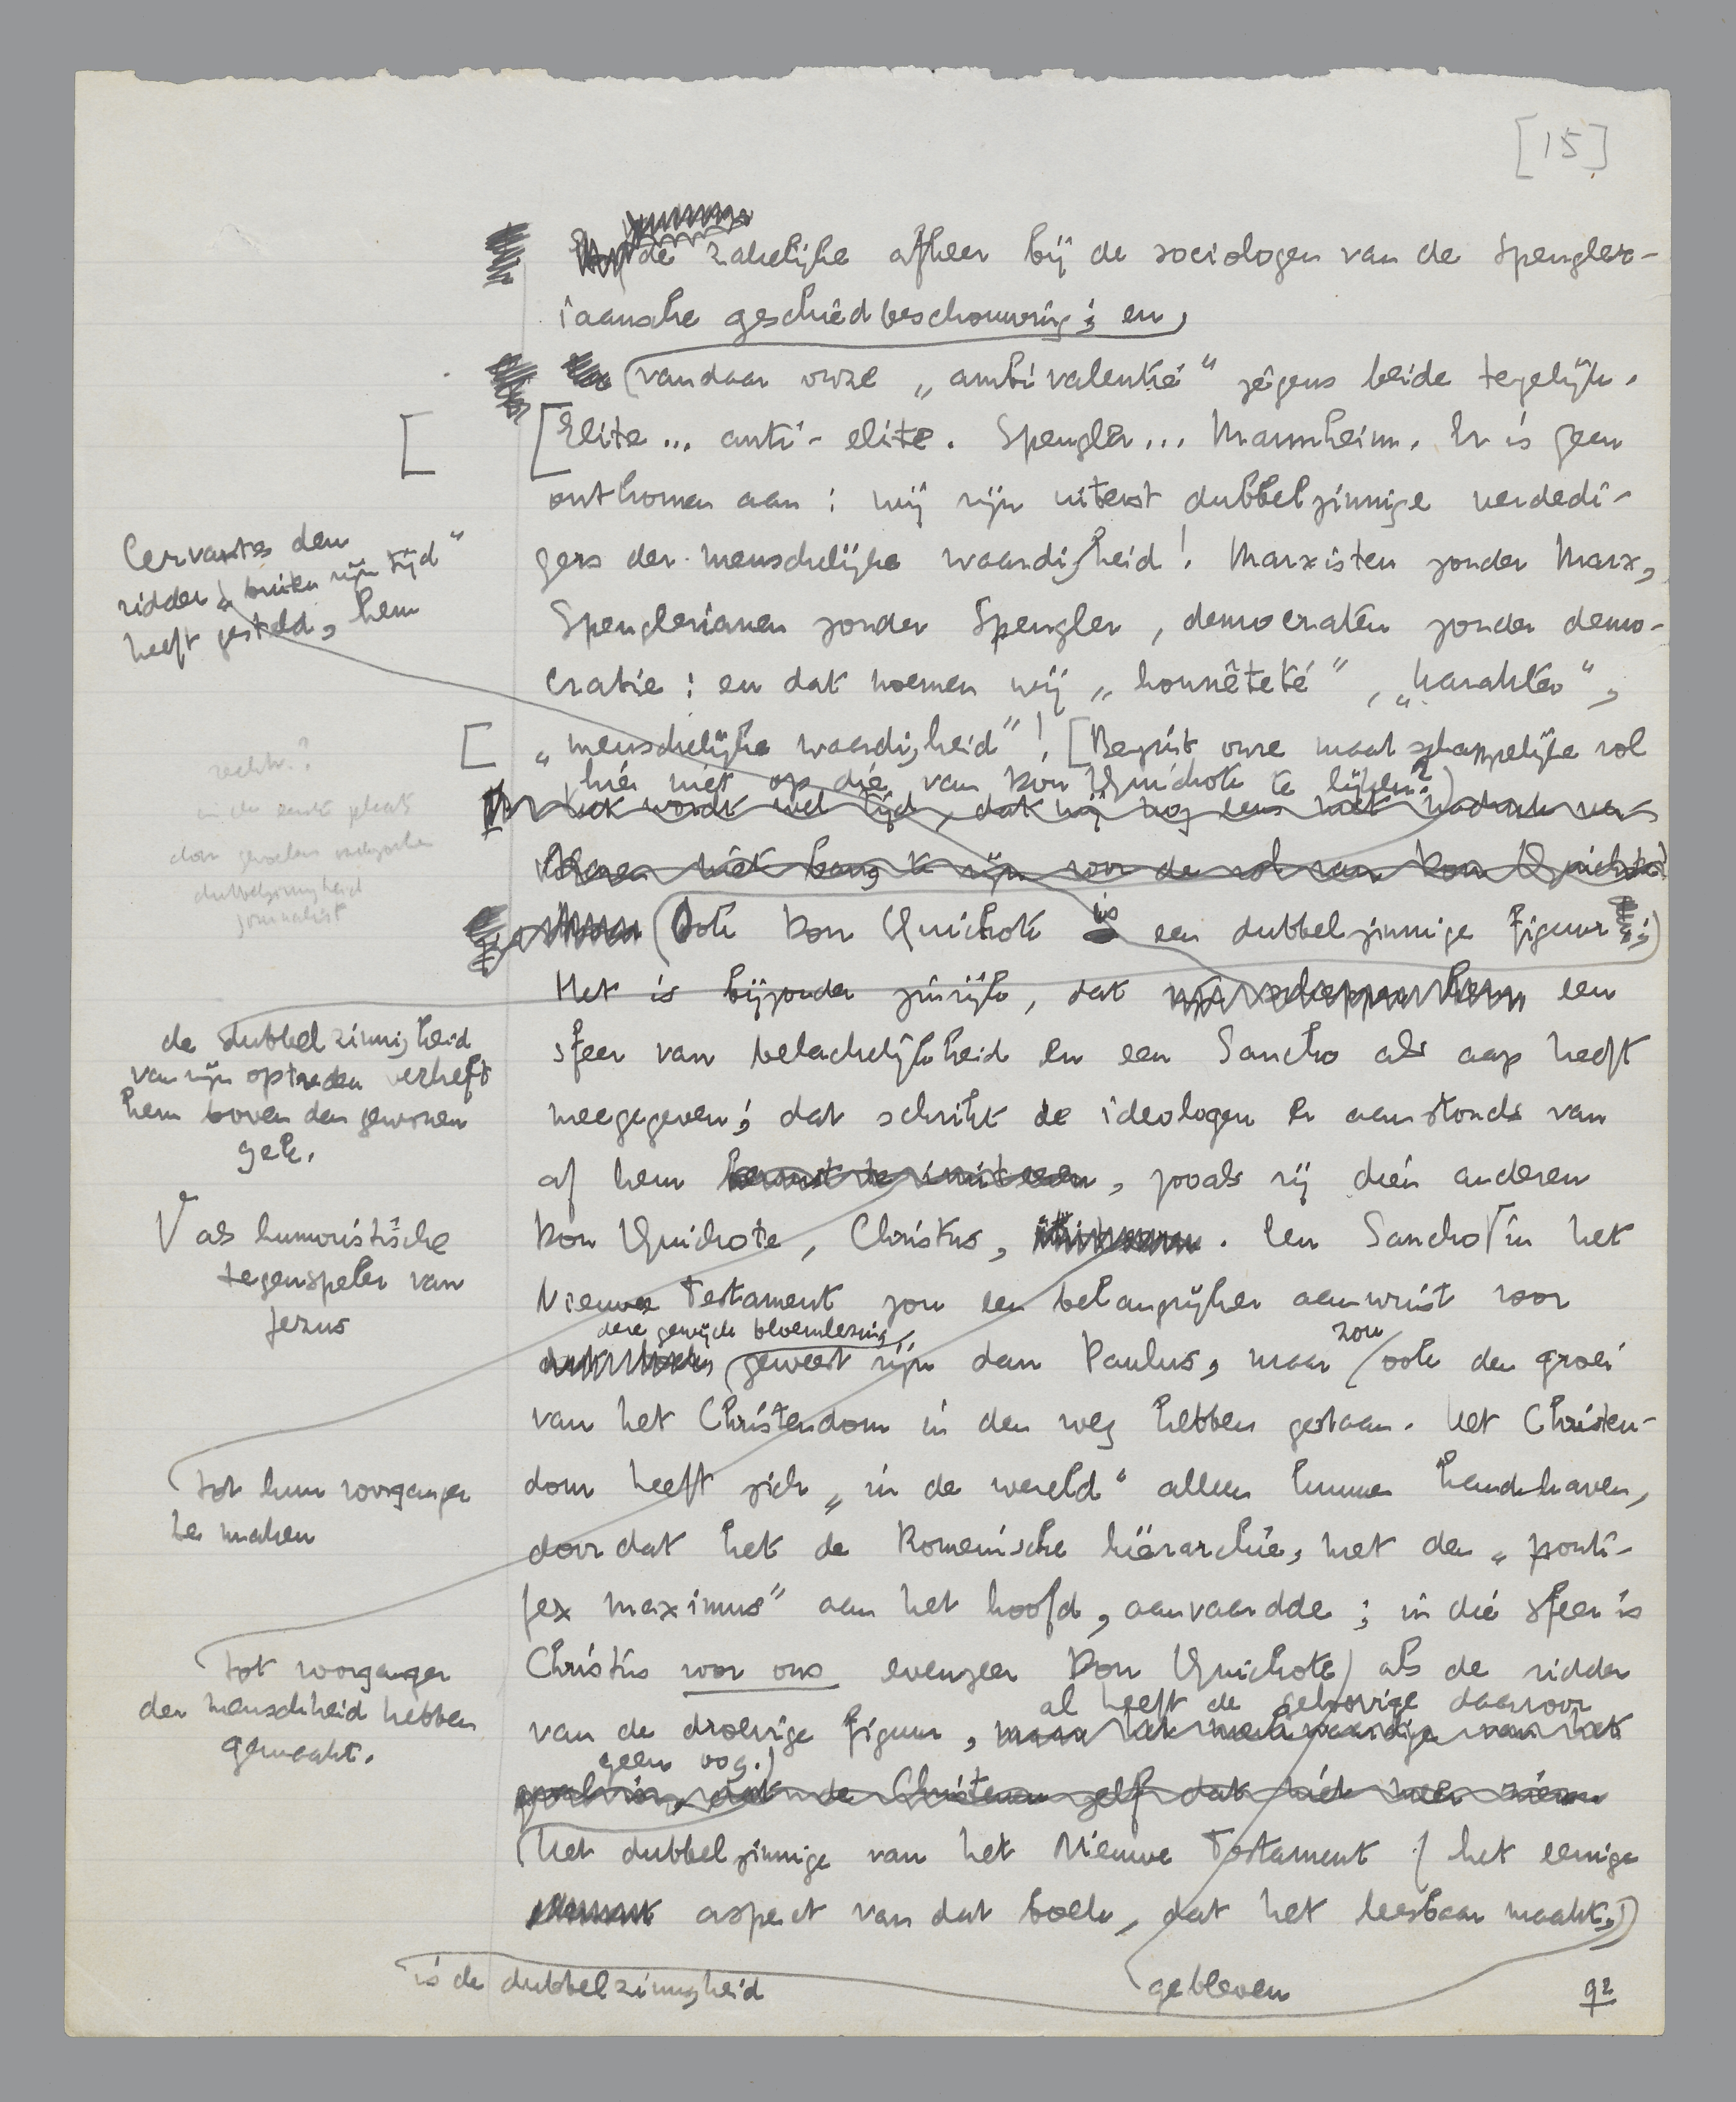 [15]
de zakelijke afkeer bij de sociologen van de Spengler-
iaansche geschiedbeschouwing; en,
vandaar onze „ambivalentie" jégens beide tegelijk.
[Elite... anti-elite. Spengler... Mannheim. Er is geen
ontkomen aan: wij zijn uiterst dubbelzinnige verdedi-
gers der menschelijke waardigheid! Marxisten zonder Marx,
Spenglerianen zonder Spengler, democraten zonder demo-
cratie: en dat noemen wij „honnêteté", „karakter",
„menschelijke waardigheid"! [Begint onze maatschappelijke rol
hier niet op die van Don Quichote te lijken?)
Het wordt wel tijd, dat wij nog eens
niet bang te zijn voor de rol van Don Quichote
(Ook Don Quichote is een dubbelzinnige figuur;)
Het is bijzonder zinrijk, dat een
sfeer van belachelijkheid en een Sancho als aap heeft
meegegeven; dat schrikt de ideologen er aanstonds van
af hem , zooals zij dien anderen
Don Quichote, Christus, . Een Sancho √ in het
Nieuwe Testament zou een belangrijker aanwinst voor
deze gewijde bloemlezing
geweest zijn dan Paulus, maar zou ook den groei
van het Christendom in den weg hebben gestaan. Het Christen-
dom heeft zich „in de wereld" alleen kunnen handhaven,
doordat het de Romeinsche hiërarchie, met den „ponti-
fex maximus" aan het hoofd, aanvaardde; in die sfeer is
Christus voor ons evenzeer Don Quichote) als de ridder
al heeft de geloovige daarvoor
van de droevige figuur,
geen oog.)
de Christenen zelf dat niet meer zien
(het dubbelzinnige van het Nieuwe Testament (het eenige
aspect van dat boek, dat het leesbaar maakt,)
is de dubbelzinnigheid
gebleven
92
Cervantes den
ridder „buiten zijn tijd"
heeft gesteld, hem
in de eerste plaats
door
dubbelzinnigheid
journalist
de dubbelzinnigheid
van zijn optreden verheft
hem boven den gewonen
gek.
√ als humoristische
tegenspeler van
Jezus
tot hun voorganger
te maken
tot voorganger
der menschheid hebben
gemaakt.